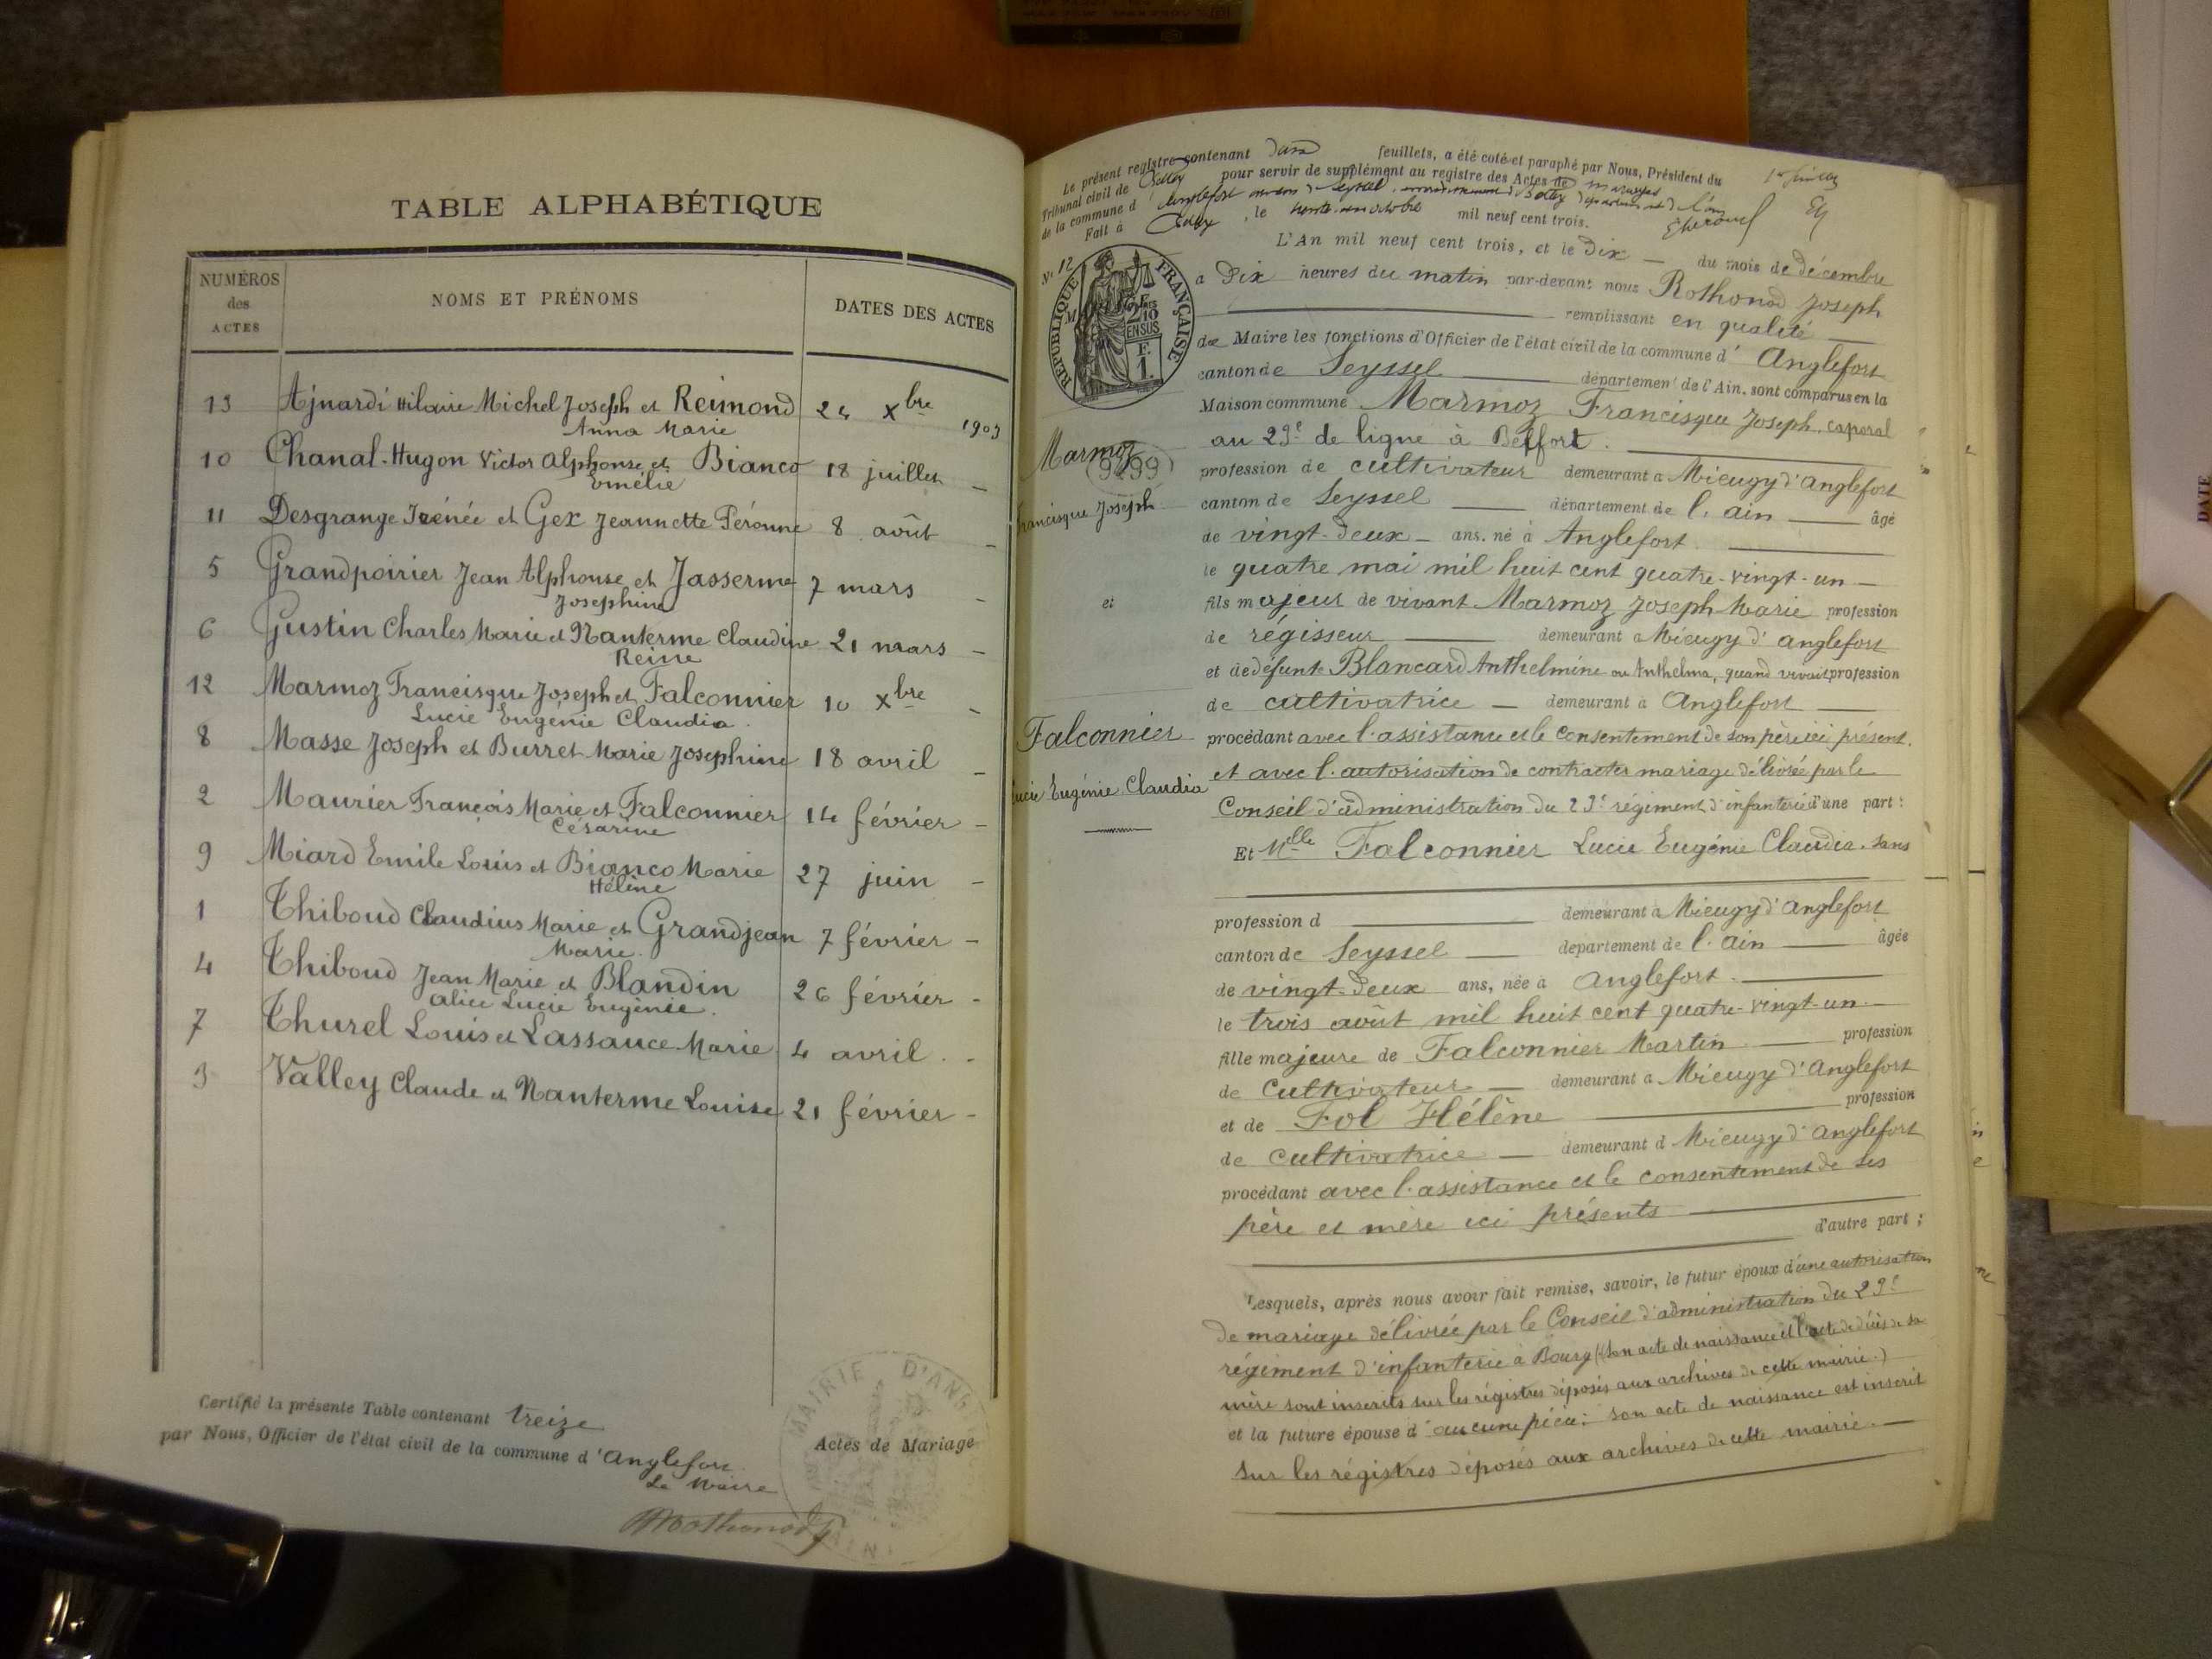 TABLE ALPHABÉTIQUE
NUMÉROS des ACTES
NOMS ET PRÉNOMS
DATES DES ACTES
13 Ajnardi Hilaire Michel Joseph et Reimond 24 Xbre 1903
Anna Marie
10 Chanal-Hugon Victor Alphonse et Bianco 18 juillet -
Emélie
11 Desgrange Irénée et Gex Jeannette Péronne 8 août -
5 Grandpoirier Jean Alphonse et Jasserme 7 mars -
Josephine
6 Gustin Charles Marie et Nanterme Claudine 21 mars -
Reine
12 Marmoz Francisque Joseph et Falconnier 10 Xbre -
Lucie Eugénie Claudia.
8 Masse Joseph et Burret Marie Josephine 18 avril -
2 Maurier François Marie et Falconnier 14 février -
Césarine
9 Miard Emile Louis et Bianco Marie 27 juin -
Hélène
1 Thiboud Claudius Marie et Grandjean 7 février -
Marie.
4 Thiboud Jean Marie et Blandin 26 février -
Alice Lucie Eugénie.
7 Thurel Louis et Lassauce Marie 4 avril . -
3 Valley Claude et Nanterme Louise 21 février -
Certifié la présente Table contenant treize
par Nous, Officier de l'état civil de la commune d'Anglefort
Le Maire
Actes de Mariage
MAIRIE D'ANG
AIN
Le présent registre contenant feuillets, a été coté et paraphé par Nous, Président du
Tribunal civil de Belley pour servir de supplément au registre des Actes de mariages
de la commune d'Anglefort canton de Seyssel, arrondissement de Belley département de l'ain
Fait à Belley, le trente-un octobre mil neuf cent trois.
N° 12
RÉPUBLIQUE FRANÇAISE
2/10 EN SUS
F. 1.
L'An mil neuf cent trois, et le Dix — du mois de décembre
a Dix heures du matin par-devant nous Rothonod Joseph
remplissant en qualité
de Maire les fonctions d'Officier de l'état civil de la commune d'Anglefort
canton de Seyssel — département de l'Ain, sont comparus en la
Maison commune Marmoz Francisque Joseph, caporal
au 23e de ligne à Belfort.
Marmoz
9499
Francisque Joseph
et
Falconnier
Lucie Eugénie Claudia
profession de cultivateur demeurant à Mieugy d'Anglefort
canton de Seyssel — département de l'ain — âgé
de vingt-deux - ans, né à Anglefort
le quatre mai mil huit cent quatre-vingt-un -
fils majeur de vivant Marmoz Joseph Marie profession
de régisseur — demeurant à Mieugy d'anglefort
et de défunte Blancard Anthelmine ou Anthelma, quand vivait profession
de cultivatrice — demeurant à Anglefort —
procédant avec l'assistance et le consentement de son père ici présent.
et avec l'autorisation de contracter mariage délivrée par le
Conseil d'administration du 23e régiment d'infanterie d'une part :
Et Melle Falconnier Lucie Eugénie Claudia, sans
profession d — demeurant à Mieugy d'Anglefort
canton de Seyssel — département de l'ain — âgée
de vingt-deux ans, née à Anglefort.
le trois août mil huit cent quatre-vingt-un.
fille majeure de Falconnier Martin — profession
de Cultivateur — demeurant à Mieugy d'Anglefort
et de Fol Hélène — profession
de cultivatrice — demeurant à Mieugy d'anglefort
procédant avec l'assistance et le consentement de ses
père et mère ici présents —
d'autre part ;
Lesquels, après nous avoir fait remise, savoir, le futur époux d'une autorisation
de mariage délivrée par le Conseil d'administration du 23e
régiment d'infanterie à Bourg (Son acte de naissance et l'acte de décès de sa
mère sont inscrits sur les régistres déposés aux archives de cette mairie.)
et la future épouse d'aucune pièce: son acte de naissance est inscrit
sur les régistres déposés aux archives de cette mairie. —
DATE